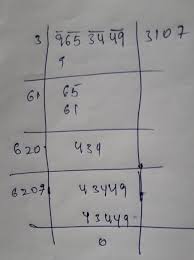 3 9̅ 6̅5̅ 3̅4̅ 4̅9̅ 3107
9
61 65
61
620 434
6207 43449
43449
0